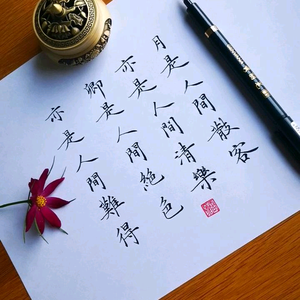 月是人間散客
亦是人間清樂
卿是人間絕色
亦是人間難得